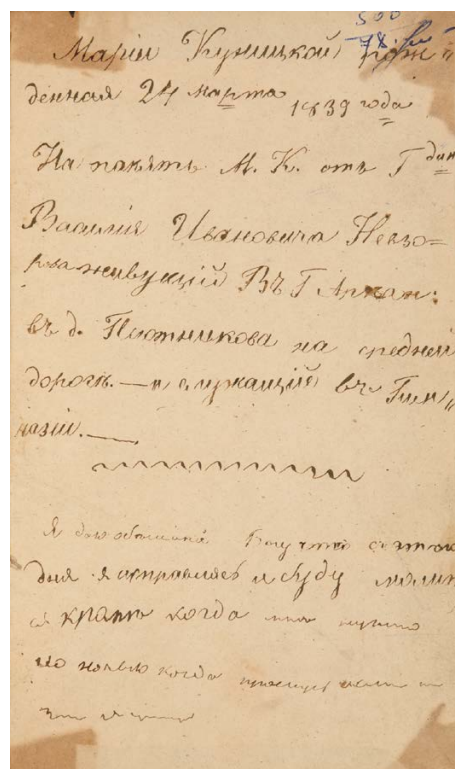 500
Маріи Куницкой рож"
денная 24 марта 1839 года
На память М. К. отъ Г дин
Василія Ивановича Невзо=
рова живущій Въ Г Архан:
въ д. Плотникова на средней
дорогѣ. — и служащій въ Гим"
назіи. —
Я даю обѣщаніе Богу что съ этого
дня я исправлюсь и буду молит
ся когда мнѣ нужно
но ночью когда